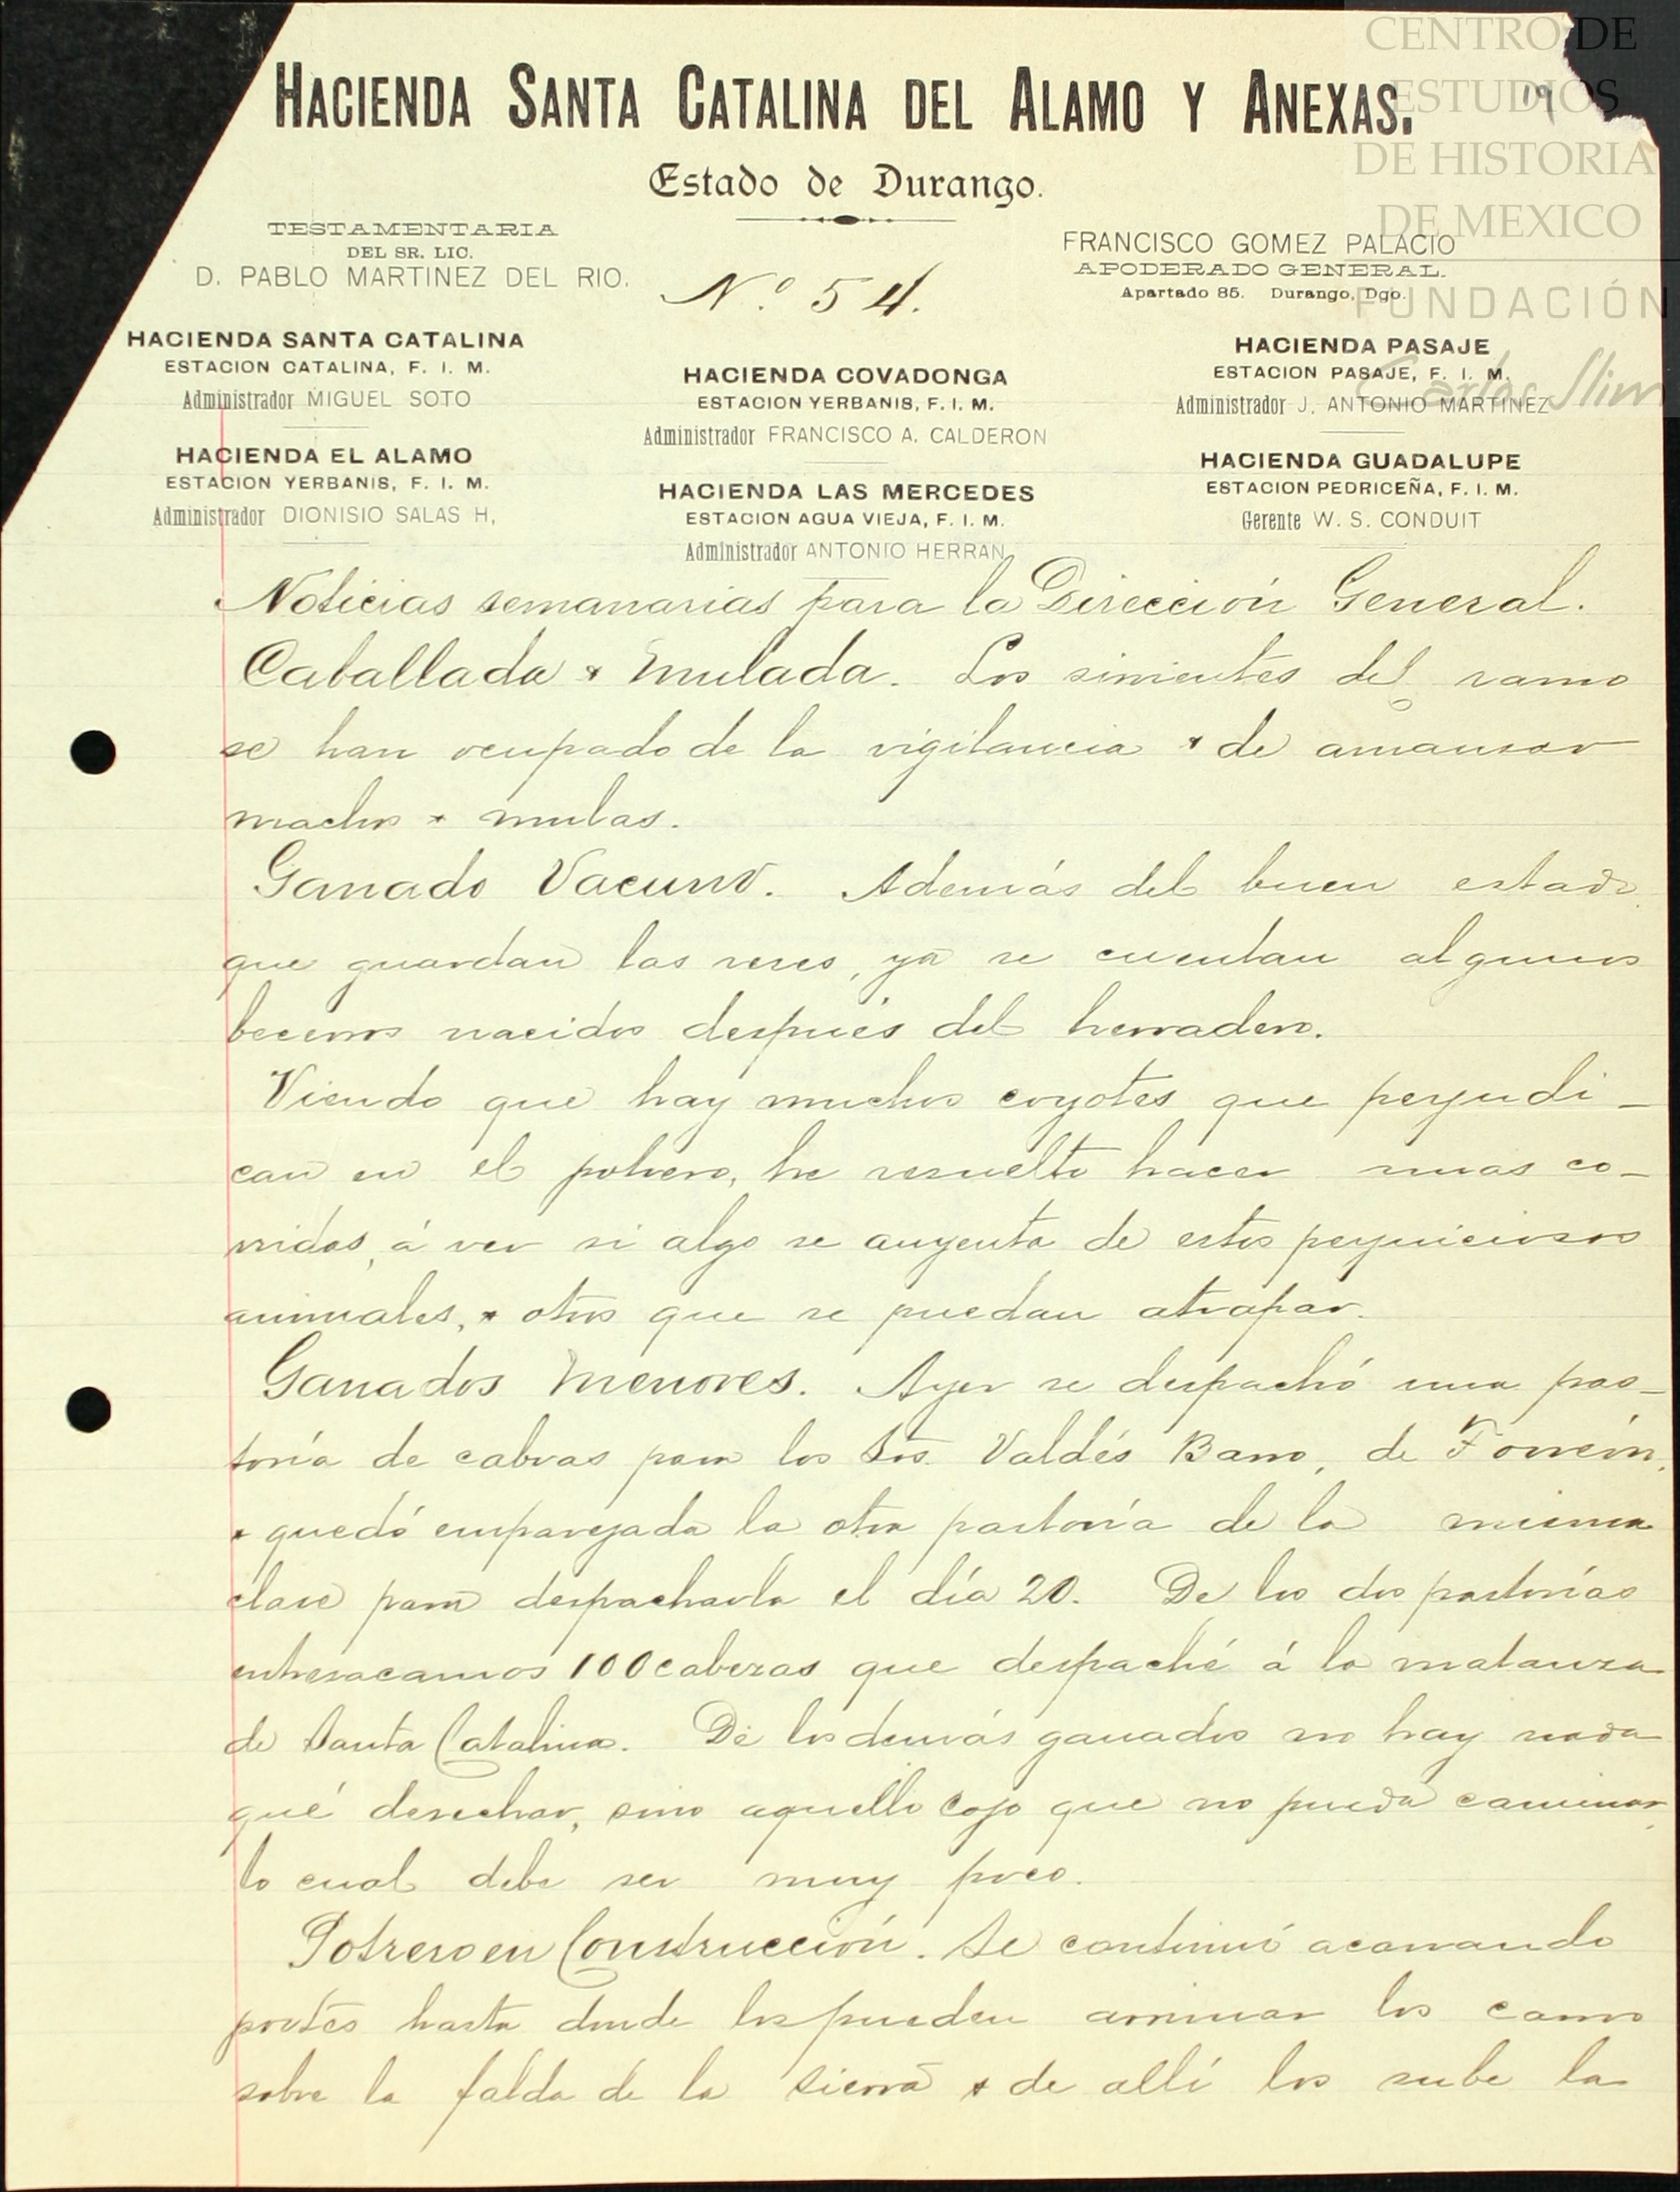 CENTRO DE
ESTUDIOS
DE HISTORIA
DE MEXICO
FUNDACIÓN
Carlos Slim
19
HACIENDA SANTA CATALINA DEL ALAMO Y ANEXAS.
Estado de Durango.
TESTAMENTARIA
DEL SR. LIC.
D. PABLO MARTINEZ DEL RIO.
No. 54.
FRANCISCO GOMEZ PALACIO
APODERADO GENERAL.
Apartado 85. Durango, Dgo.
HACIENDA SANTA CATALINA
ESTACION CATALINA, F. I. M.
Administrador MIGUEL SOTO
HACIENDA EL ALAMO
ESTACION YERBANIS, F. I. M.
Administrador DIONISIO SALAS H,
HACIENDA COVADONGA
ESTACION YERBANIS, F. I. M.
Administrador FRANCISCO A. CALDERON
HACIENDA LAS MERCEDES
ESTACION AGUA VIEJA, F. I. M.
Administrador ANTONIO HERRAN
HACIENDA PASAJE
ESTACION PASAJE, F. I. M.
Administrador J. ANTONIO MARTINEZ
HACIENDA GUADALUPE
ESTACION PEDRICEÑA, F. I. M.
Gerente W. S. CONDUIT
Noticias semanarias para la Dirección General.
Caballada & Mulada. Los sirvientes del ramo
se han ocupado de la vigilancia & de amansar
machos & mulas.
Ganado Vacuno. Además del buen estado
que guardan las reses, ya se cuentan algunos
becerros nacidos después del herradero.
Viendo que hay muchos coyotes que perjudi-
can en el potrero, he resuelto hacer unas co-
rridas, á ver si algo se auyenta de estos perjuiciosos
animales, & otros que se puedan atrapar.
Ganados Menores. Ayer se despachó una pas-
toría de cabras para los Srs. Valdés Barro, de Torreón,
& quedó emparejada la otra pastoría de la misma
clase para despacharla el día 20. De las dos pastorías
entresacamos 100 cabezas que despaché á la matanza
de Santa Catalina. De los demás ganados no hay nada
qué desechar, sino aquello cojo que no pueda caminar,
lo cual debe ser muy poco.
Potrero en Construcción. Se continuó acarreando
postes hasta donde los pueden arrimar los carros
sobre la falda de la Sierra & de allí los sube la